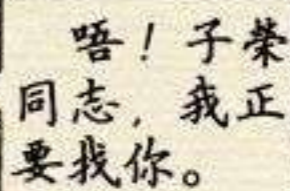 唔！子榮
同志，我正
要找你。